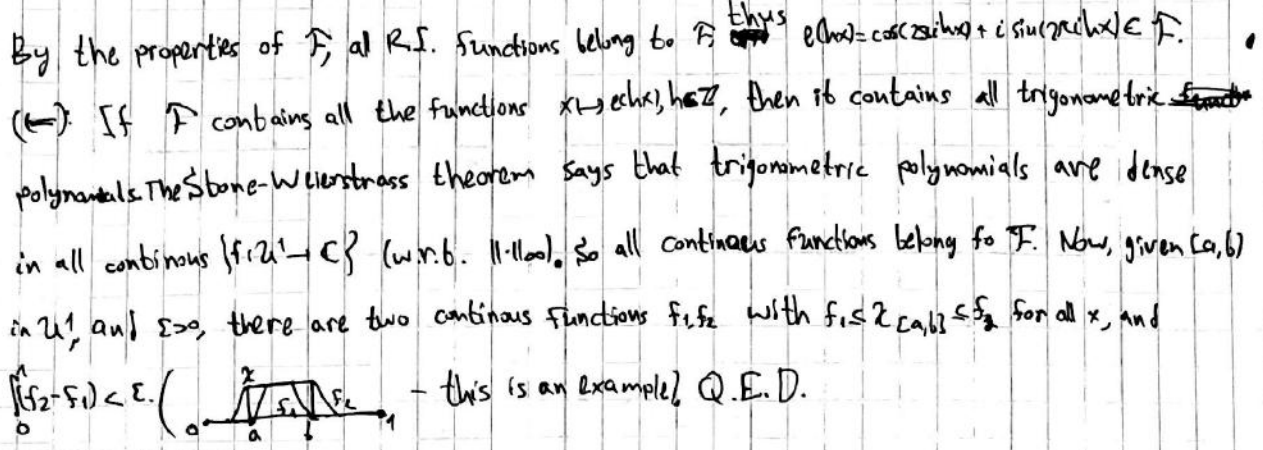 By the properties of F, al R.I. functions belong to F, thus e(hx)=cos(2πihx)+i sin(2πihx)∈ F.
(⇐): If F contains all the functions x↦e(hx), h∈Z, then it contains all trigonometric
polynomials. The Stone-Weierstrass theorem says that trigonometric polynomials are dense
in all continous {f:U¹→C} (w.r.t. ||·||∞). So all continous functions belong to F. Now, given [a,b)
in U¹, and ε>0, there are two continous functions f₁,f₂ with f₁≤χ[a,b]≤f₂ for all x, and
∫₀¹(f₂-f₁)<ε. ( χ f₁ f₂ 0 a b 1 - this is an example) Q.E.D.